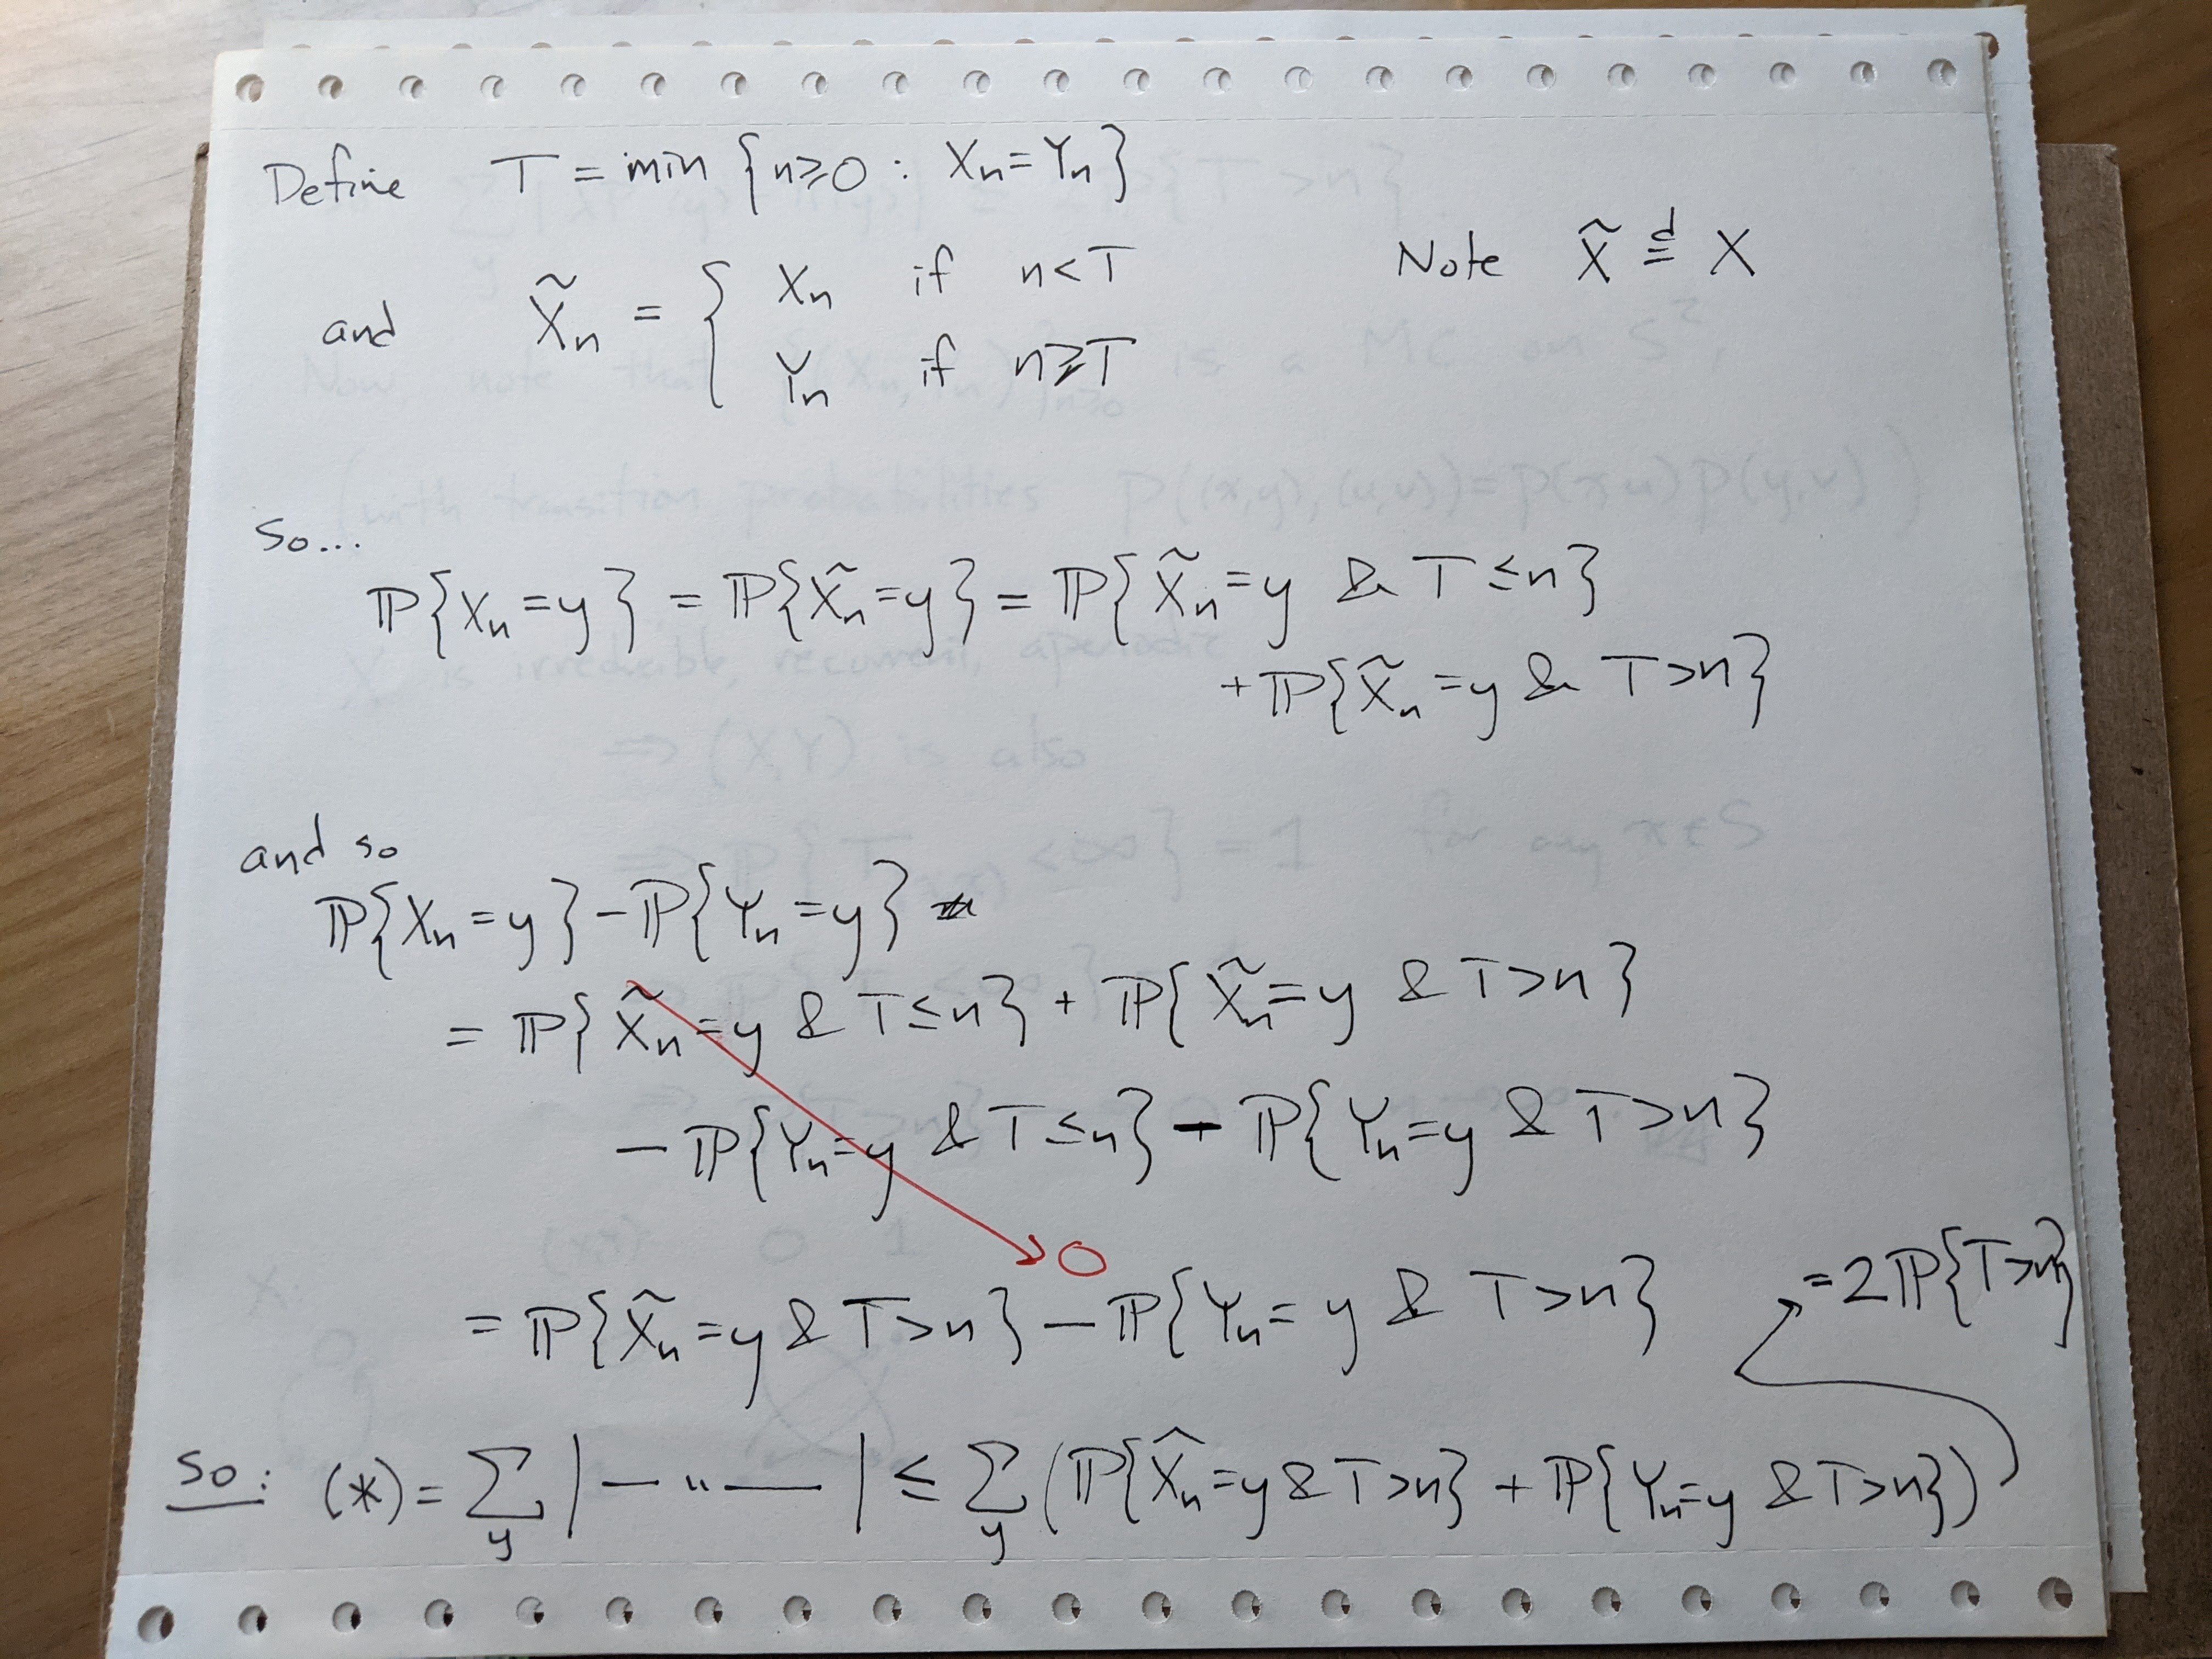 Define T = min {n≥0 : Xn = Yn}
Note X̃ =ᵈ X
and X̃n = { Xn if n<T
Yn if n≥T
So...
ℙ{Xn=y} = ℙ{X̃n=y} = ℙ{X̃n=y & T≤n}
+ℙ{X̃n=y & T>n}
and so
ℙ{Xn=y}-ℙ{Yn=y}
= ℙ{X̃n=y & T≤n} + ℙ{X̃n=y & T>n}
- ℙ{Yn=y & T≤n} - ℙ{Yn=y & T>n}
0
= ℙ{X̃n=y & T>n} - ℙ{Yn=y & T>n}
=2ℙ{T>n}
So: (*) = Σy |—"—| ≤ Σy (ℙ{X̂n=y & T>n} + ℙ{Yn=y & T>n})